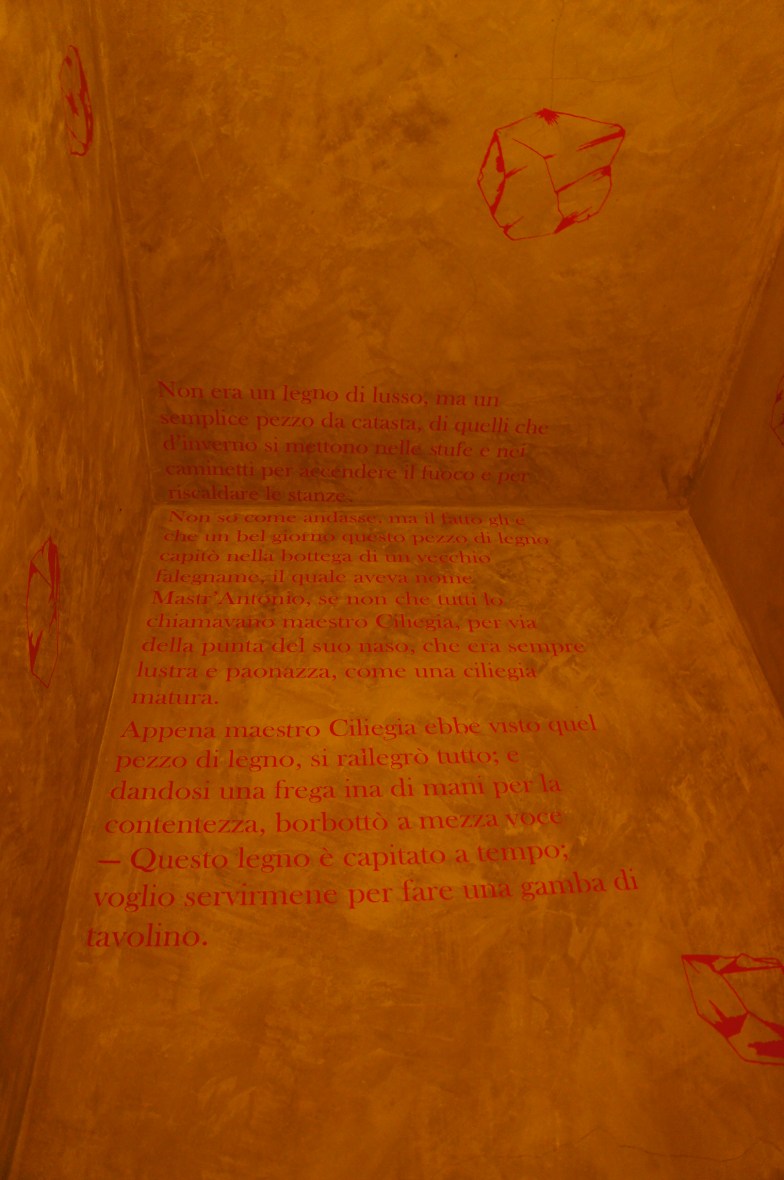 Non era un legno di lusso, ma un
semplice pezzo da catasta, di quelli che
d'inverno si mettono nelle stufe e nei
caminetti per accendere il fuoco e per
riscaldare le stanze.
Non so come andasse, ma il fatto gli è
che un bel giorno questo pezzo di legno
capitò nella bottega di un vecchio
falegname, il quale aveva nome
Mastr'Antonio, se non che tutti lo
chiamavano maestro Ciliegia, per via
della punta del suo naso, che era sempre
lustra e paonazza, come una ciliegia
matura.
Appena maestro Ciliegia ebbe visto quel
pezzo di legno, si rallegrò tutto; e
dandosi una frega ina di mani per la
contentezza, borbottò a mezza voce
— Questo legno è capitato a tempo;
voglio servirmene per fare una gamba di
tavolino.